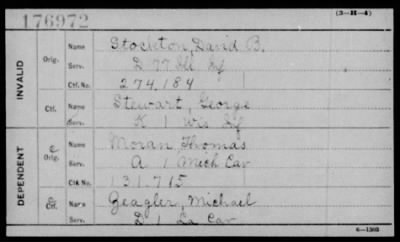 176972
(3—H—4)
INVALID
Orig.
Name Stockton, David B.
Serv. D 77 Ill Inf
Ctf. No. 274,184
Ctf.
Name Stewart, George
Serv. K 1 Wis Inf
DEPENDENT
Orig.
Name Moran, Thomas
Serv. A 1 Mich Cav
Ctf. No. 131,715
Ctf.
Name Zeagler, Michael
Serv. D 1 La Cav
6—1303